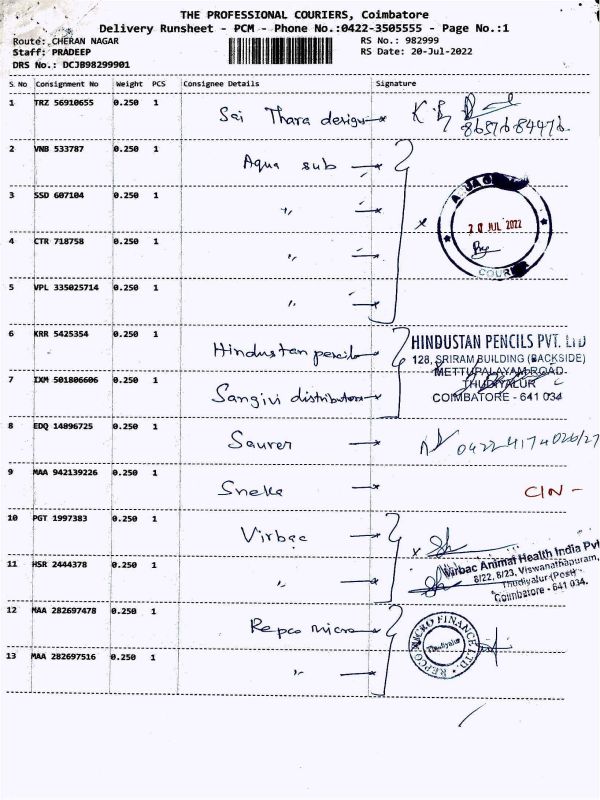 THE PROFESSIONAL COURIERS, Coimbatore
Delivery Runsheet - PCM - Phone No.:0422-3505555 - Page No.:1
Route: CHERAN NAGAR RS No.: 982999
Staff: PRADEEP RS Date: 20-Jul-2022
DRS No.: DCJB98299901
S. No Consignment No Weight PCS Consignee Details Signature
1 TRZ 56910655 0.250 1 Sai Thara design
2 VNB 533787 0.250 1 Aqua sub
3 SSD 607104 0.250 1 "
20 JUL 2022
4 CTR 718758 0.250 1 "
COURIER
5 VPL 335025714 0.250 1 "
6 KRR 5425354 0.250 1 Hindustan pencils HINDUSTAN PENCILS PVT. LTD
128, SRIRAM BUILDING (BACKSIDE)
METTUPALAYAM ROAD
7 IXM 501806606 0.250 1 Sangivi distributors THUDIYALUR
COIMBATORE - 641 034
8 EDQ 14896725 0.250 1 Saurer 0422 4174026/27
9 MAA 942139226 0.250 1 Sneka CIN -
10 PGT 1997383 0.250 1 Virbac
Virbac Animal Health India Pvt
11 HSR 2444378 0.250 1 " 6/22, 6/23, Viswanathapuram,
Thudiyalur (Post)
Coimbatore - 641 034.
12 MAA 282697478 0.250 1 Repco micro REPCO MICRO FINANCE LTD.
Thudiyalur
13 MAA 282697516 0.250 1 "